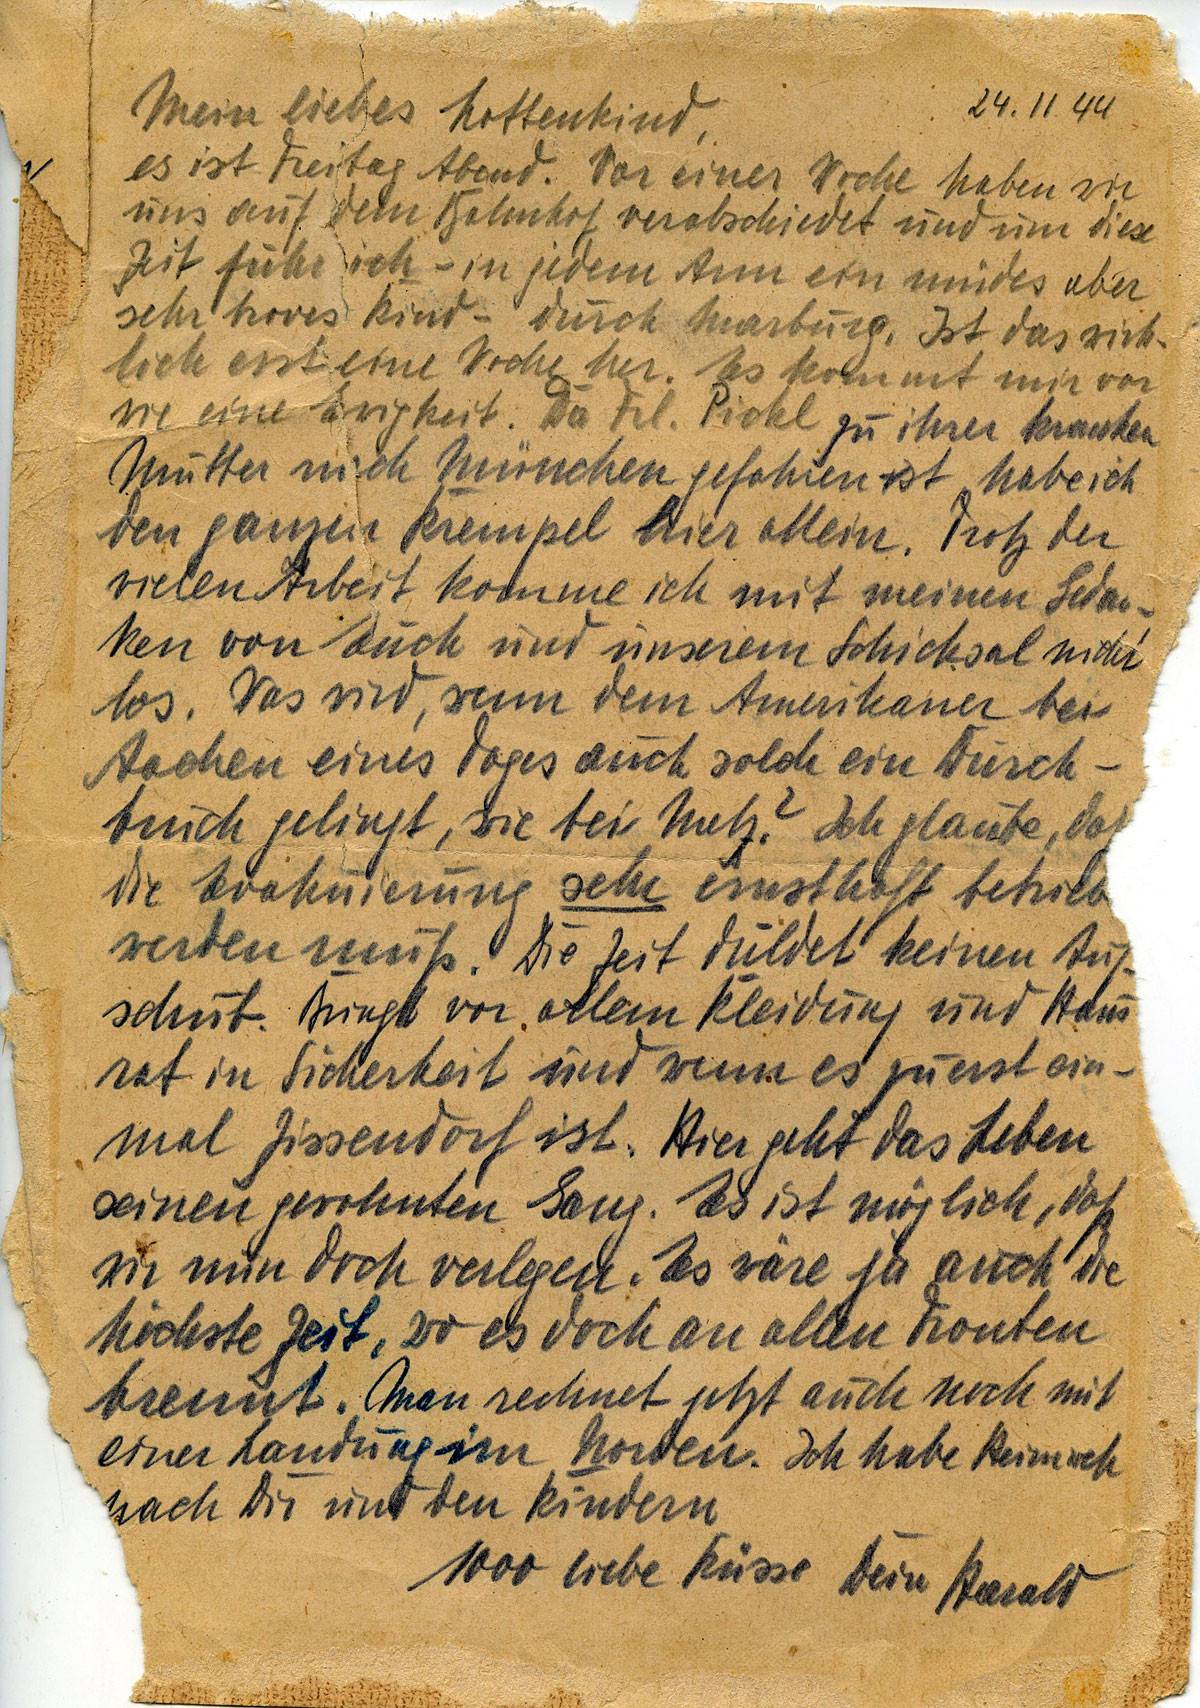 24.11.44
Mein liebes Mottenkind,
es ist Freitag Abend. Vor einer Woche haben wir
uns auf dem Bahnhof verabschiedet und um diese
Zeit fuhr ich - in jedem Arm ein müdes aber
sehr braves Kind - durch Marburg. Ist das wirk-
lich erst eine Woche her. Es kommt mir vor
wie eine Ewigkeit. Da Frl. Pickl zu ihrer kranken
Mutter nach München gefahren ist, habe ich
den ganzen Krempel hier allein. Trotz der
vielen Arbeit komme ich mit meinen Gedan-
ken von Euch und unserem Schicksal nicht
los. Was wird, wenn dem Amerikaner bei
Aachen eines Tages auch solch ein Durch-
bruch gelingt, wie bei Metz? Ich glaube, daß
die Evakuierung sehr ernsthaft betrieb
werden muß. Die Zeit duldet keinen Auf-
schub. Bringt vor allem Kleidung und Haus
rat in Sicherheit und wenn es zuerst ein-
mal Zissendorf ist. Hier geht das Leben
seinen gewohnten Gang. Es ist möglich, daß
wir nun doch verlegen. Es wäre ja auch die
höchste Zeit, wo es doch an allen Fronten
brennt. Man rechnet jetzt auch noch mit
einer Landung im Norden. Ich habe Heimweh
nach Dir und den Kindern
1000 liebe Küsse Dein Harald